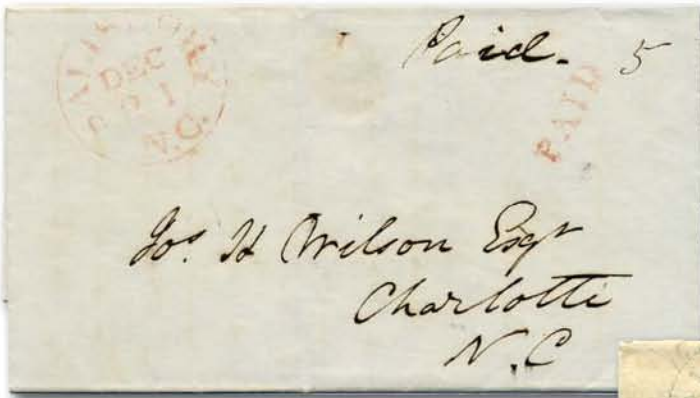 SALISBURY N.C.
DEC
21
Paid. 5
PAID
Jos. H Wilson Esqr
Charlotte
N.C